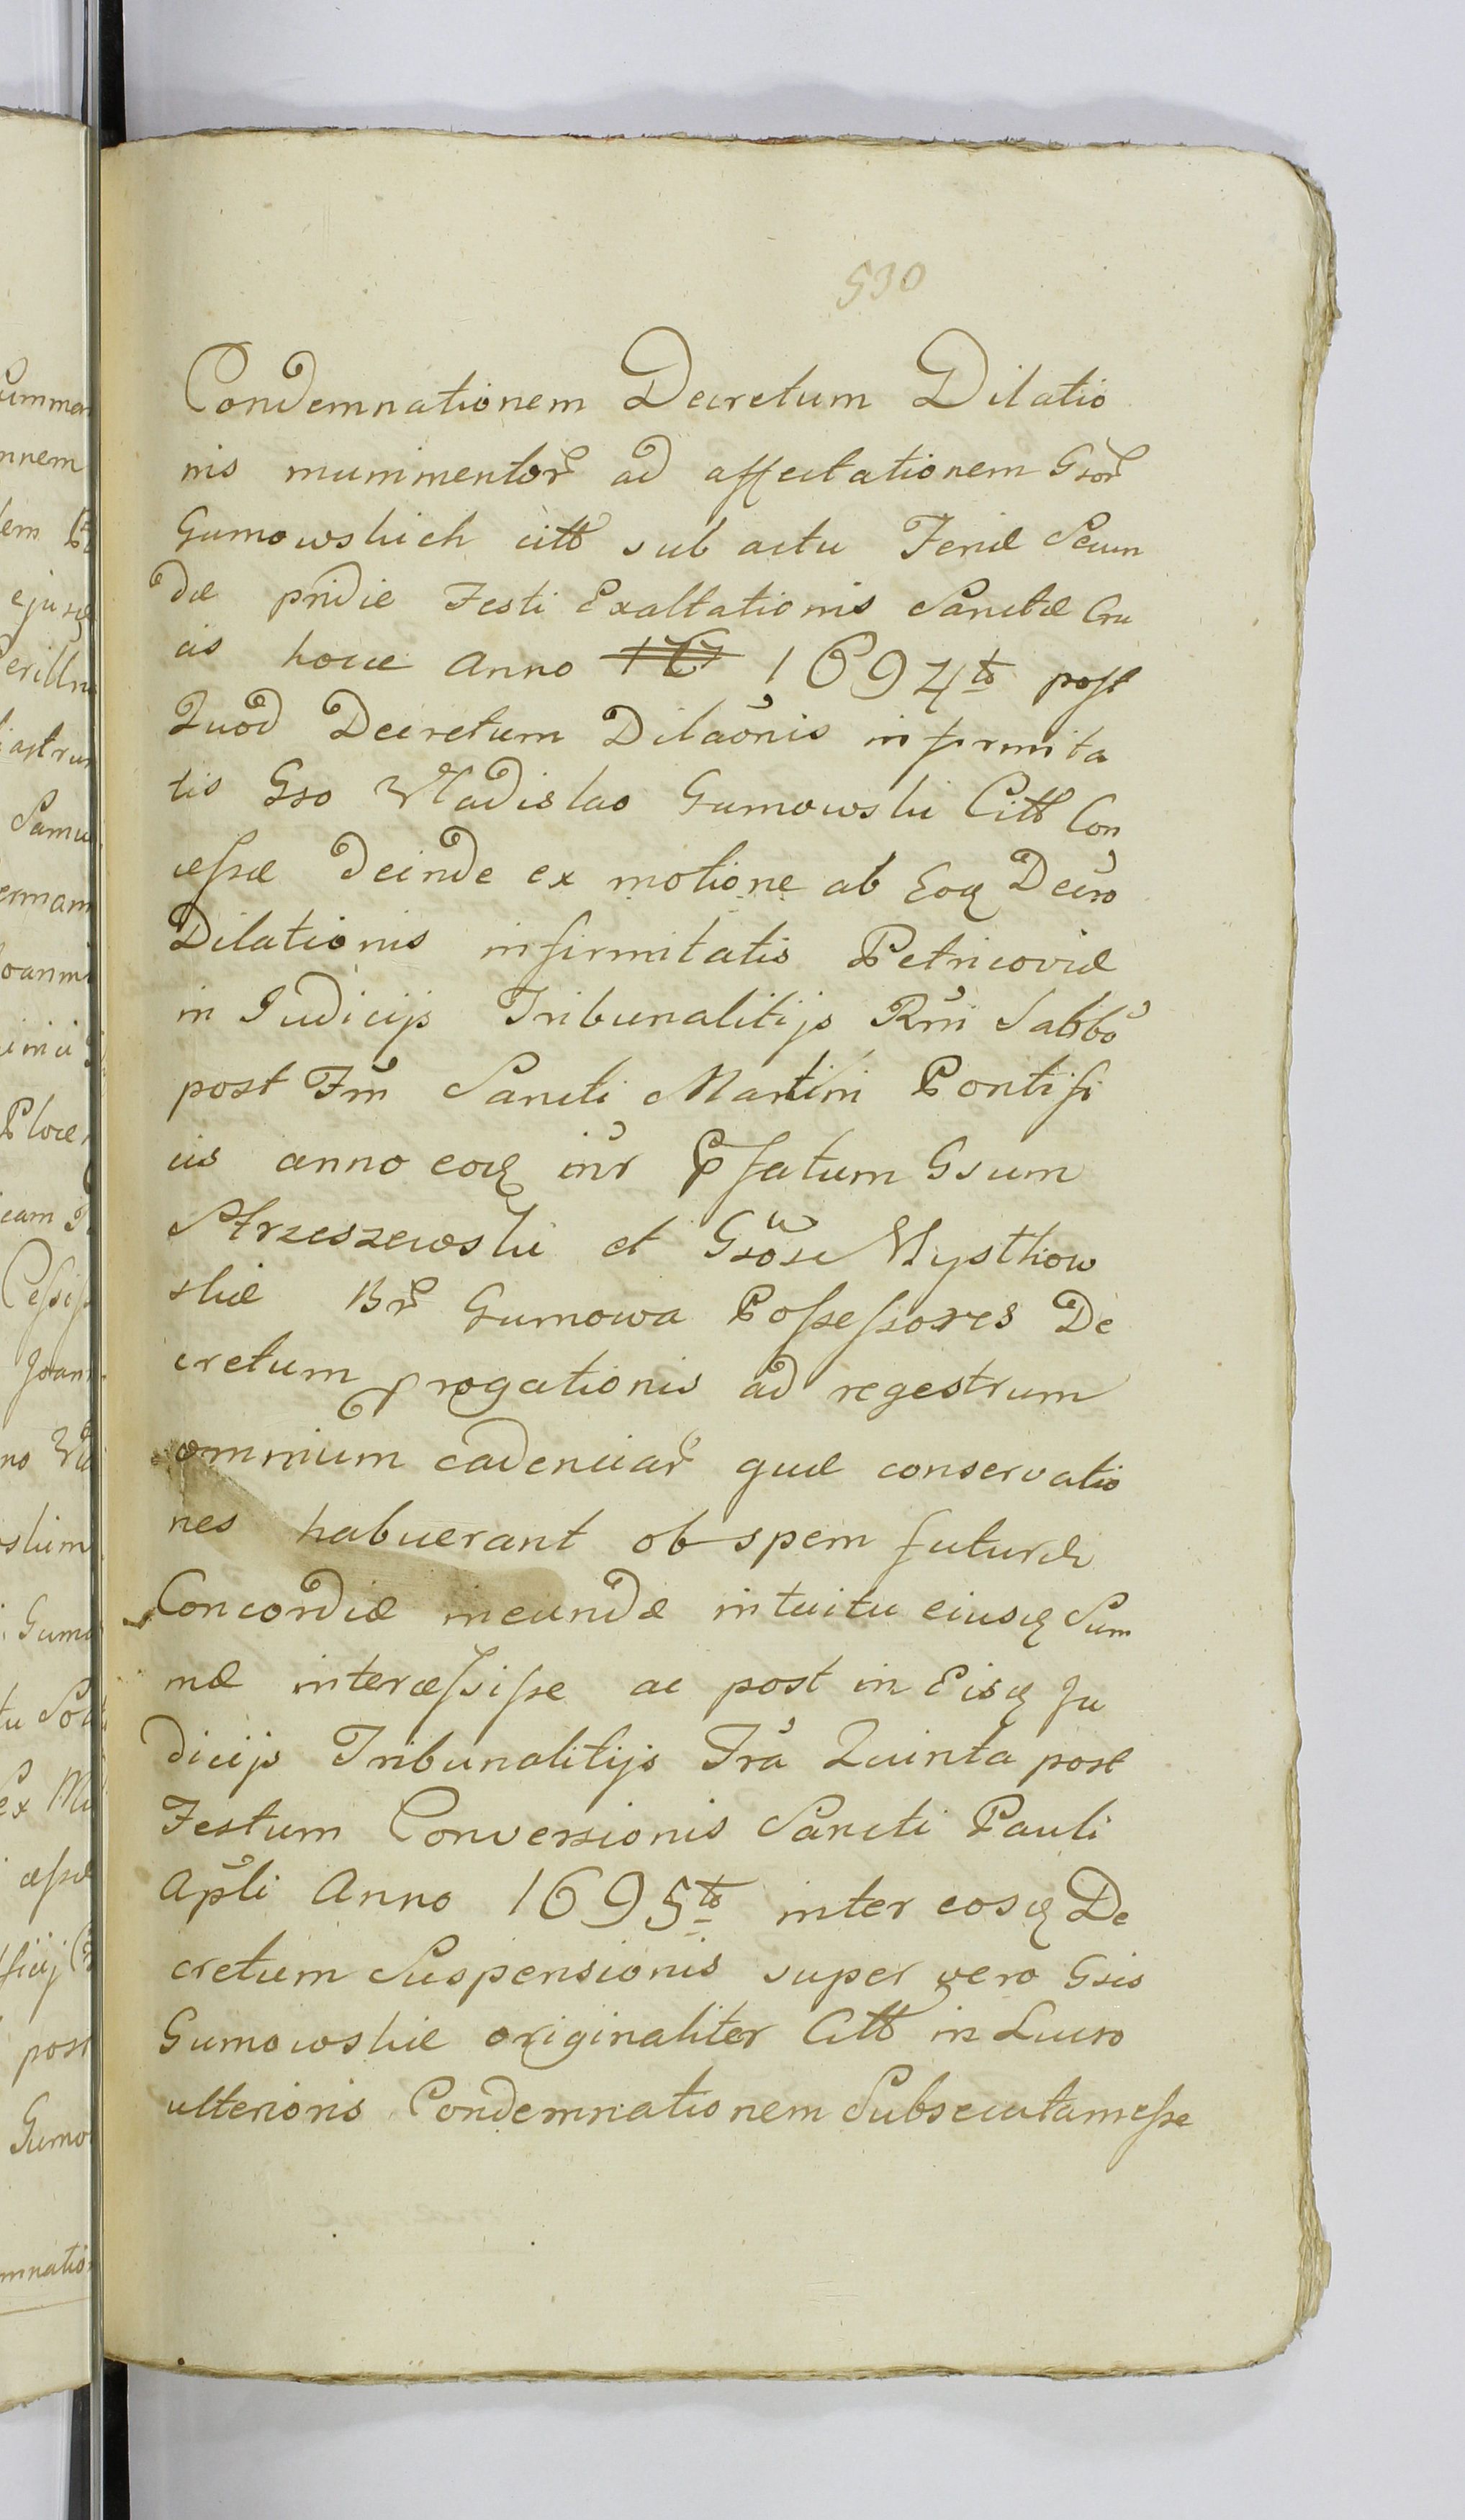 530
Condemnationem Decretum Dilatio
nis munimentor̃ ad affectationem Gsor̃
Gumowskich citt̃ sub actu Feriæ Secun
dæ pridie Festi Exaltationis Sanctæ Cru
cis hocce Anno 1694to post
Quod Decretum Dilaõnis infirmita
tis Gso Władislao Gumowski Citt̃ Con
cessæ deinde ex motione ab Eoq Decro
Dilationis infirmitatis Petricoviæ
in Judicijs Tribunalitijs Rñi Sabbõ
post Fm̃ Sancti Martini Pontifi
cis anno eoq inr̃ Pfatum Gsum
Strzeszewski et Gsõse Mysthow
skie Br̃ Gumowa Possessores De
cretum Prrogationis ad regestrum
omnium cadenciar̃ quæ conservatio
nes habuerant ob spem futuræ
Concordiæ ineundæ intuitu eiusq Sum
mæ intercessisse ac post in Eisq Ju
dicijs Tribunalitijs Frã Quinta post
Festum Conversionis Sancti Pauli
Apl̃i Anno 1695to inter eosq De
cretum Suspensionis super vero Gsis
Gumowskie originaliter Citt̃ in Lucro
ulterioris Condemnationem Subsecutam esse